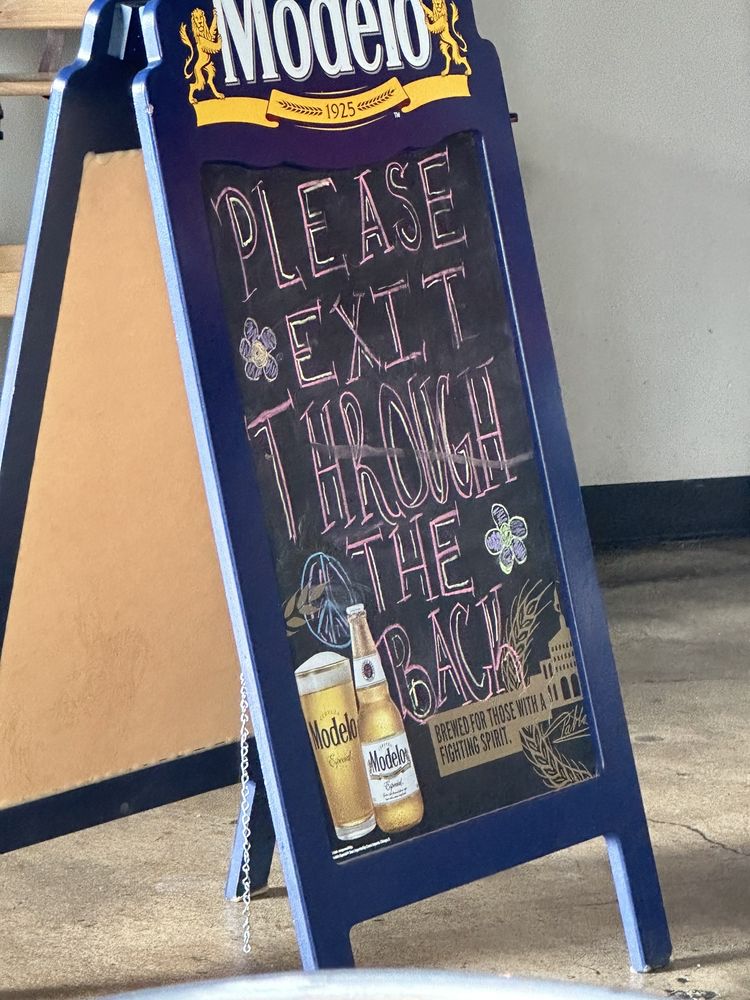 Modelo
1925
TM
PLEASE
EXIT
THROUGH
THE
BACK
Modelo
Especial
Modelo
Especial
BREWED FOR THOSE WITH A
FIGHTING SPIRIT.